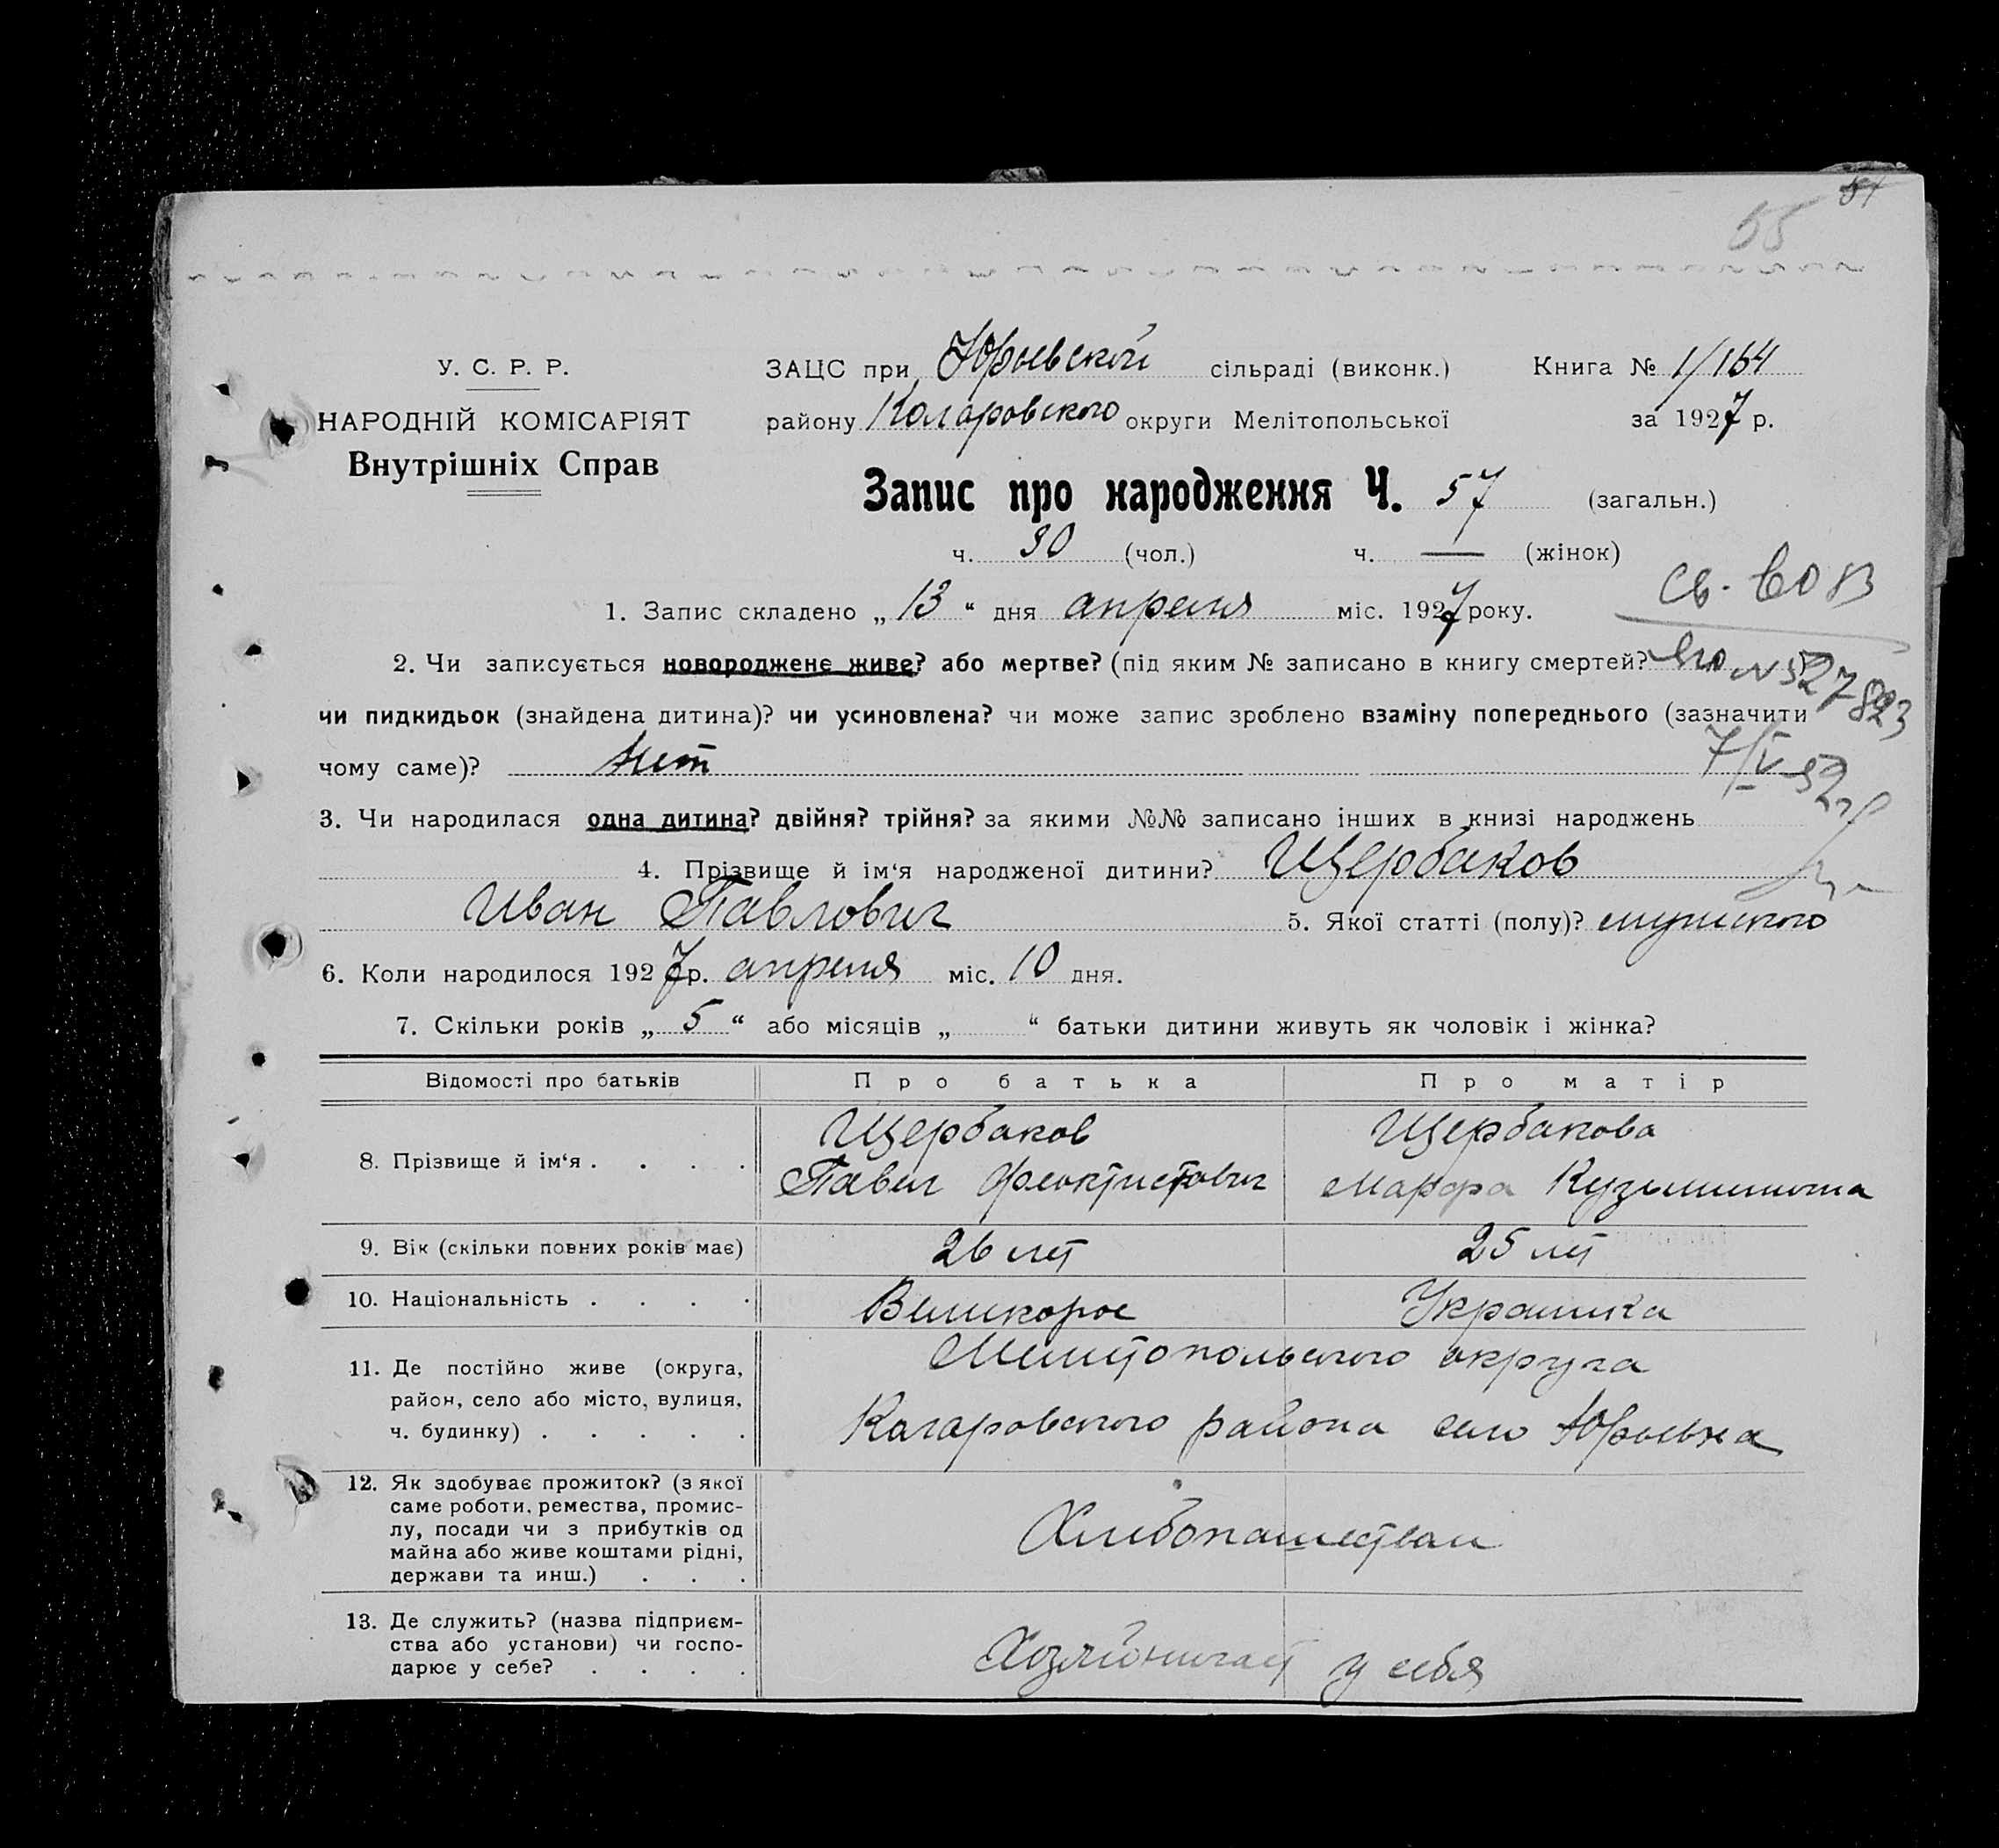 55
У. С. Р. Р.
НАРОДНІЙ КОМІСАРІЯТ
Внутрішніх Справ
ЗАЦС при Юрьевской сільраді (виконк.) Книга № 1/164
району Коларовского округи Мелітопольської за 1927 р.
Запис про народження Ч. 57 (загальн.)
ч. 30 (чол.) ч. — (жінок)
1. Запис складено „ 13 “ дня апреля міс. 1927 року.
Св. во
2. Чи записується новороджене живе? або мертве? (під яким № записано в книгу смертей?
чи пидкидьок (знайдена дитина)? чи усиновлена? чи може запис зроблено взаміну попереднього (зазначити
чому саме)? нет
7/V-52
3. Чи народилася одна дитина? двійня? трійня? за якими №№ записано інших в книзі народжень
4. Прізвище й ім‘я народженої дитини? Щербаков
Иван Павлович 5. Якої статті (полу)? мужского
6. Коли народилося 1927 р. апреля міс. 10 дня.
7. Скільки років „ 5 “ або місяців „ “ батьки дитини живуть як чоловік і жінка?
Відомості про батьків Про батька Про матір
8. Прізвище й ім‘я . . . . Щербаков Щербакова
Павел Феоктистович Марфа Кузьминична
9. Вік (скільки повних років має) 26 лет 25 лет
10. Національність . . . . Великорос Украинка
11. Де постійно живе (округа, Мелитопольского округа
район, село або місто, вулиця,
ч. будинку) . . . . . Коларовского района село Юрьевка
12. Як здобуває прожиток? (з якої
саме роботи, ремества, промис-
лу, посади чи з прибутків од
майна або живе коштами рідні,
держави та инш.) . . .
Хлебопашеством
13. Де служить? (назва підприєм-
ства або установи) чи госпо-
дарює у себе? . . . .
Хозяйничает у себя